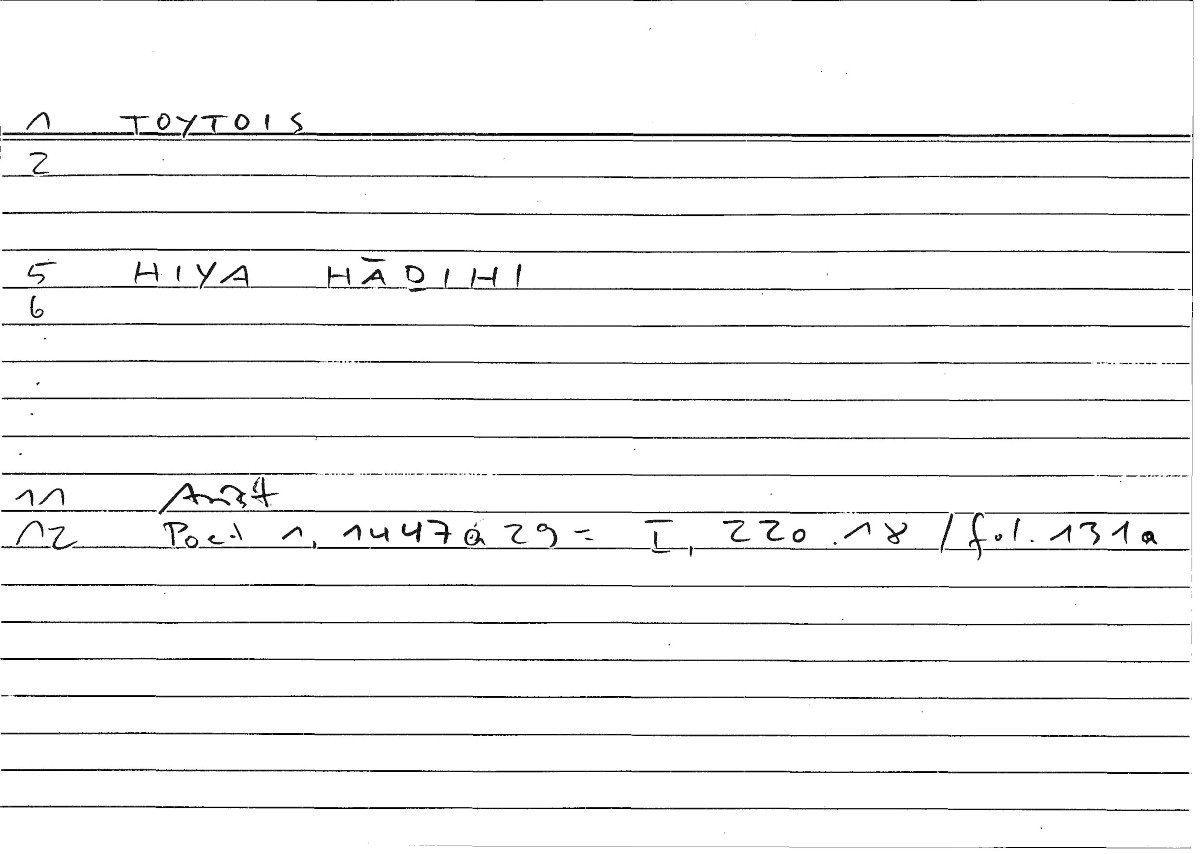 1 TOYTOIS
2
5 HIYA HĀḎIHI
6
11
12 Poet 1, 1447a 29 = I, 220.18 / fol. 131a